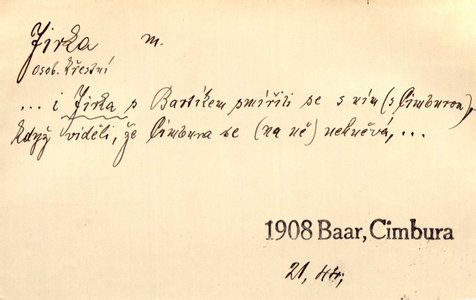 Jirka m.
osob. křestní
... i Jirka s Bartíkem smířili se s ním (s Cimburou),
když viděli, že Cimbura se (na ně) nehněvá, ...
1908 Baar, Cimbura
21, str.